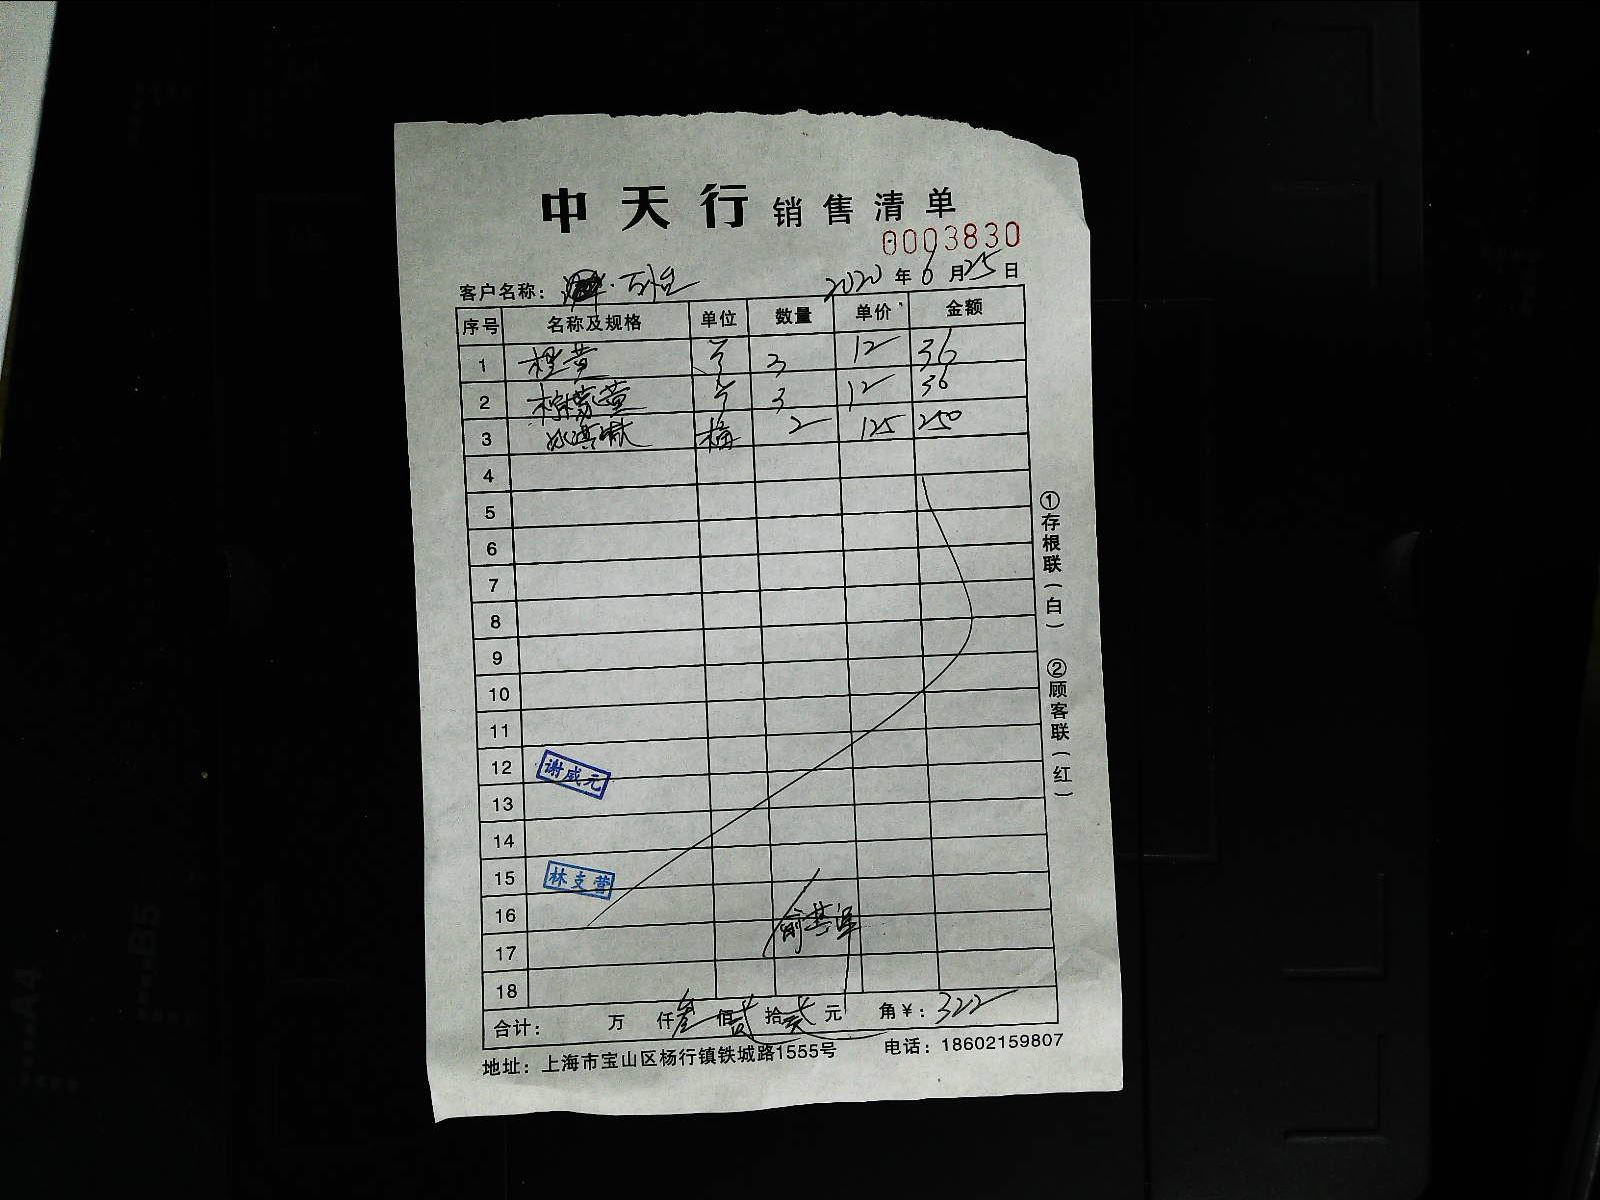 中天行 销售清单
0003830
客户名称： 2020年6月25日
序号 名称及规格 单位 数量 单价 金额
1 橙黄 个 3 12 36
2 柠檬黄 个 3 12 36
3 冰淇淋 桶 2 125 250
4
5
6
7
8
9
10
11
12 谢威元
13
14
15 林支营
16
17
18
合计： 万 仟叁佰贰拾贰元 角￥：322
地址：上海市宝山区杨行镇铁城路1555号 电话：18602159807
①存根联（白） ②顾客联（红）